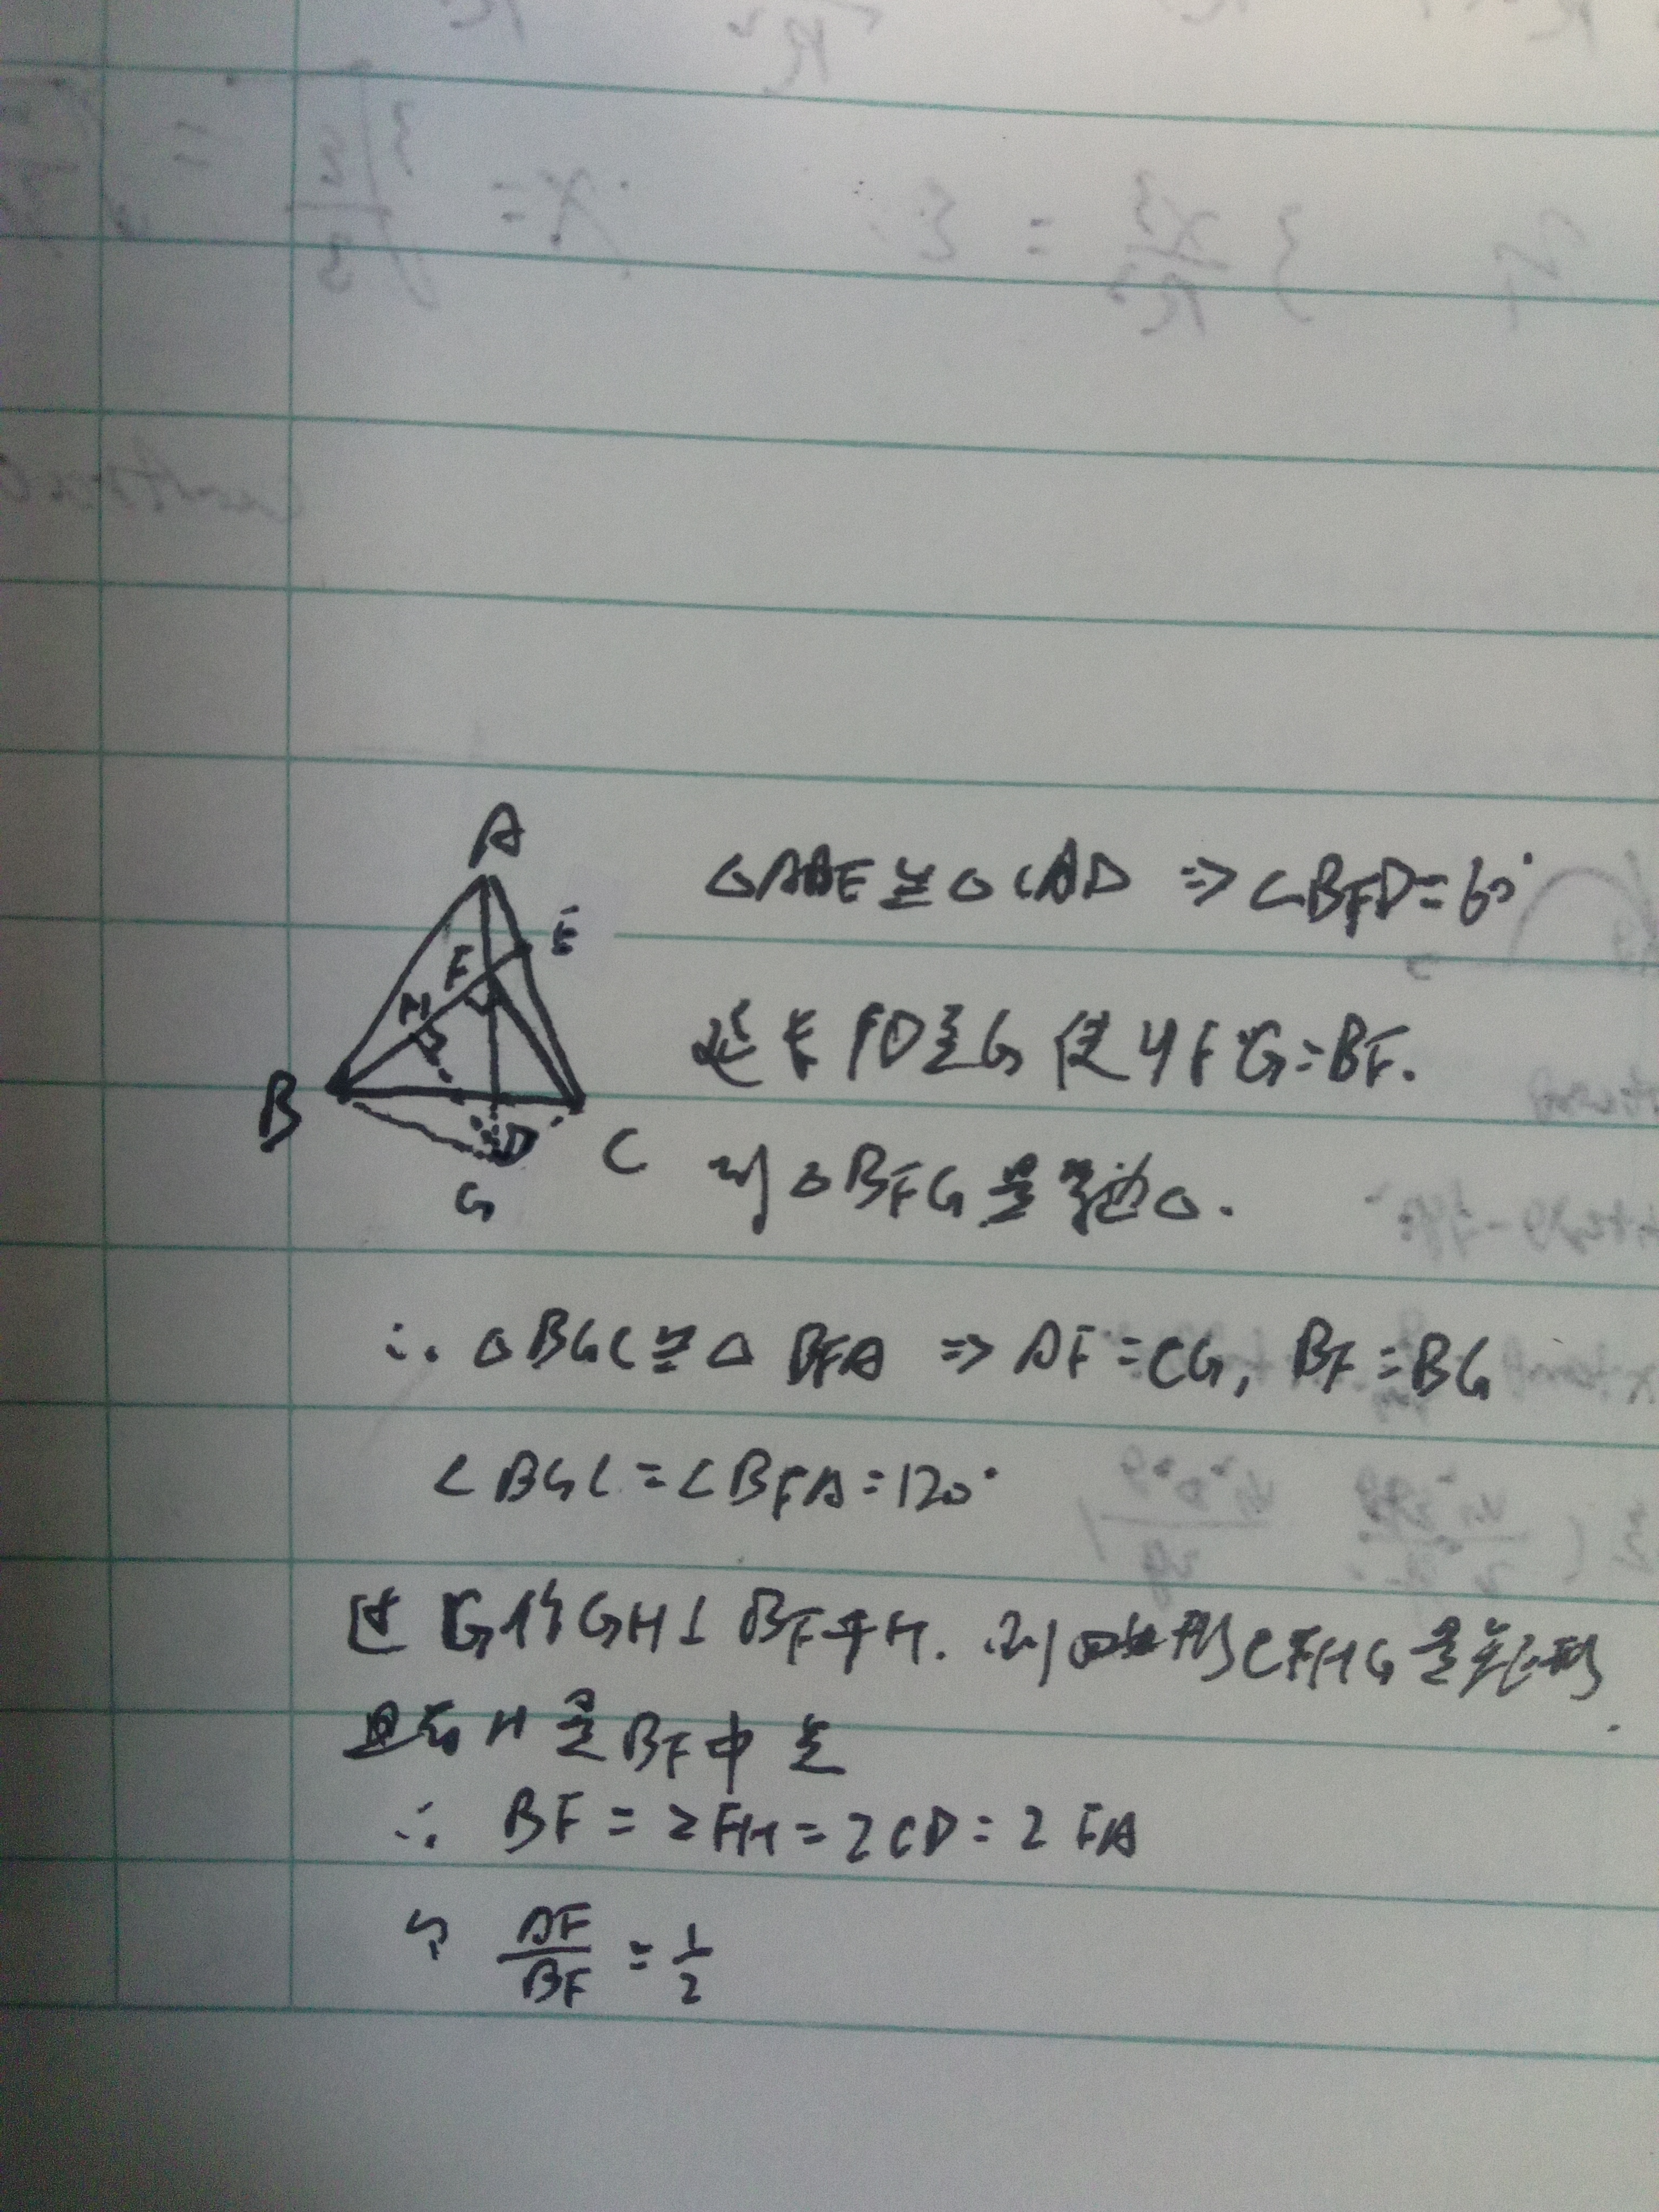 A
E
F
H
B
D
C
G
△ABE≌△CAD ⇒ ∠BFD=60°
延长FD至G使得FG=BF.
则△BFG是等边△.
∴ △BGC≌△BFA ⇒ AF=CG, BF=BG
∠BGC=∠BFA=120°
过G作GH⊥BF于H. 则四边形CFHG是矩形
且有H是BF中点
∴ BF=2FH=2CD=2FA
AF/BF=1/2